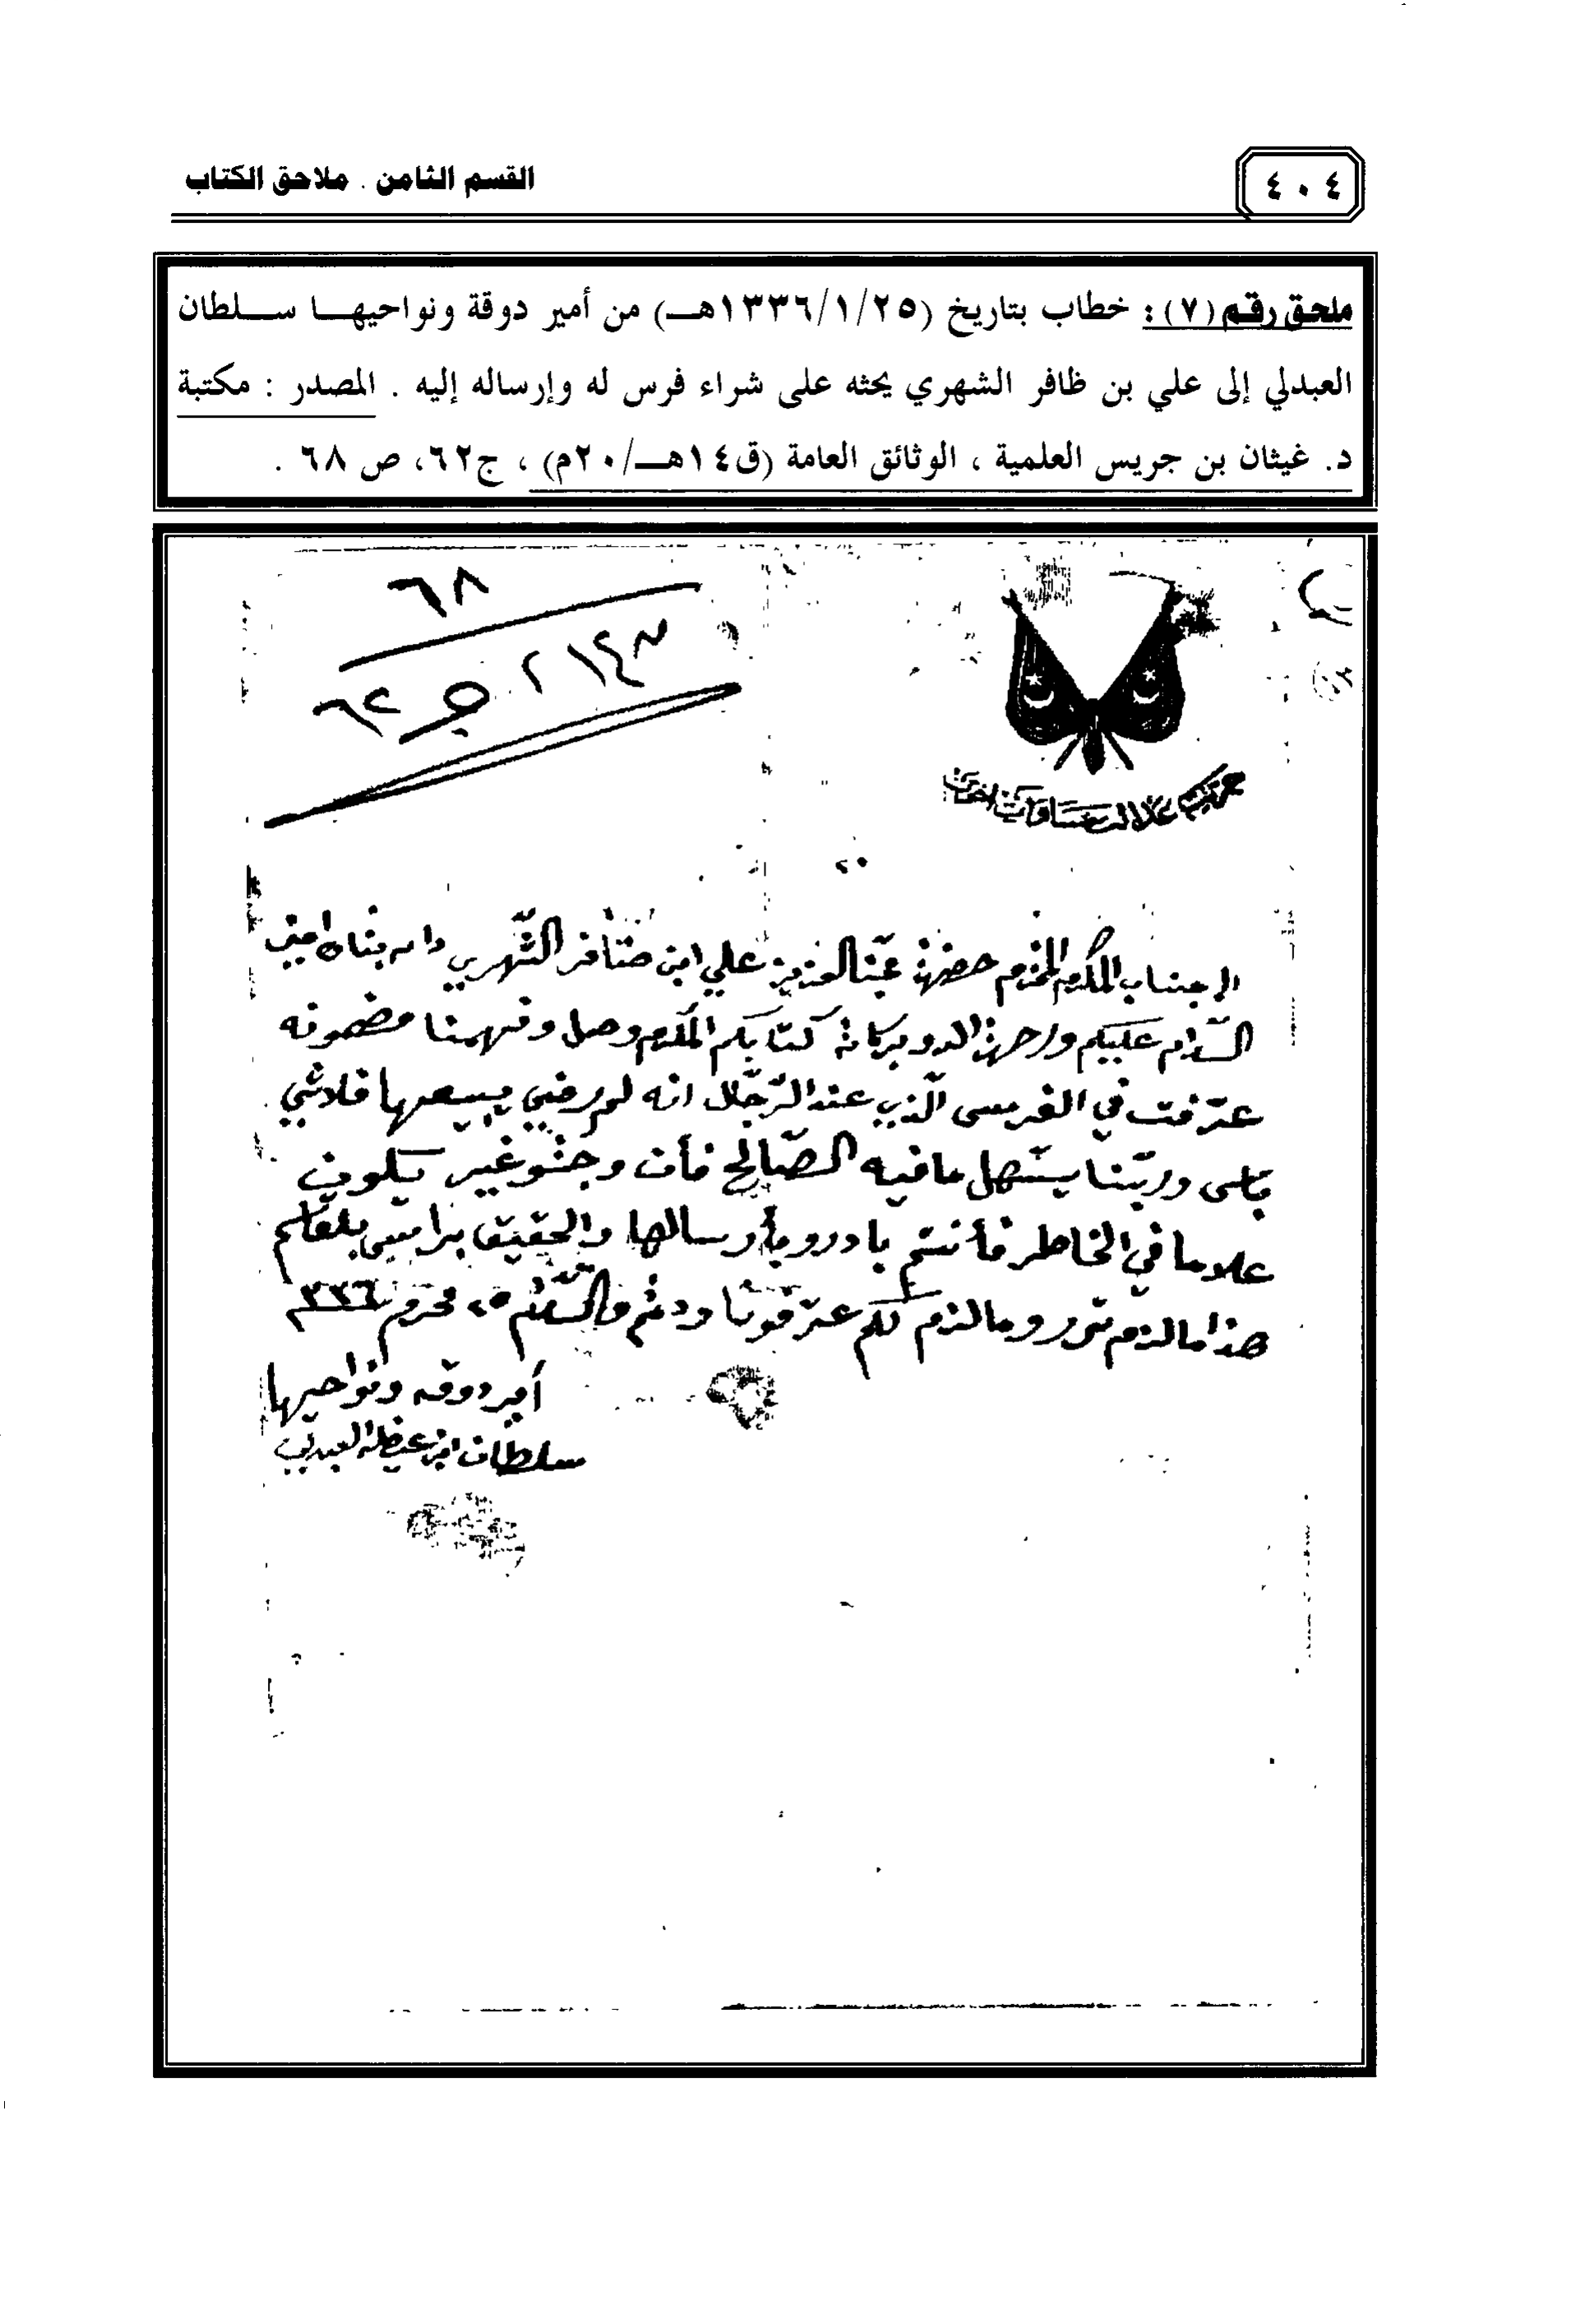 ٤٠٤
القسم الثامن . ملاحق الكتاب
ملحق رقم (٧) : خطاب بتاريخ (١٣٣٦/١/٢٥هـ) من أمير دوقة ونواحيها سلطان
العبدلي إلى علي بن ظافر الشهري يحثه على شراء فرس له وإرساله إليه . المصدر : مكتبة
د. غيثان بن جريس العلمية ، الوثائق العامة (ق١٤هـ/٢٠م) ، ج٦٢، ص ٦٨ .
٦٨
ج ٦٢
الى جناب المكرم المحترم حضرة محبنا العزيز علي ابن ضافر الشهري دام بقاه امين
السلام عليكم ورحمة الله وبركاته كتابكم المكرم وصل وفهمنا مضمونه
عرفت في الفرس الذي عند الرجال انه لم رضي يبيعها فلاشي
باس وربنا يسهل ما فيه الصالح فأن وجدتو غير يكون
علاما في الخاطر فأنتم بادرو بأرسالها والحقيق براس بلغكم
هذا ما لزم حرر وما لزم لكم عرفونا ودمتم والسلام ٢٥ محرم ٣٣٦
أمير دوقه ونواحيها
سلطان ابن العبدلي